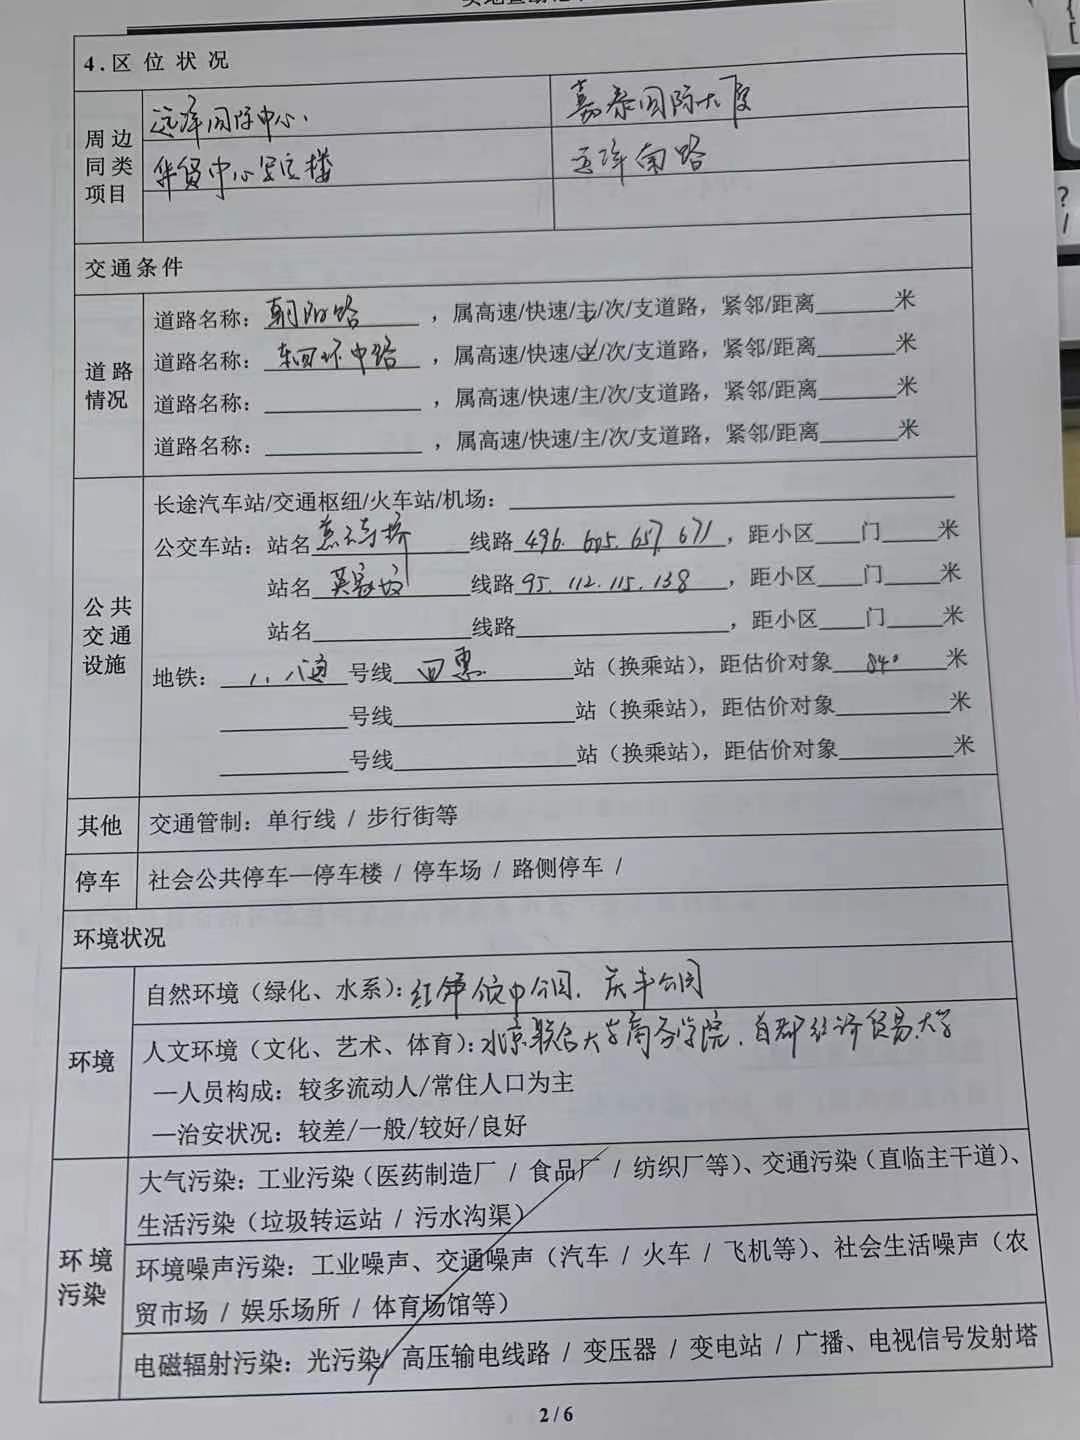 4.区 位 状 况
周 边 同 类 项目
远洋国际中心
嘉泰国际大厦
华贸中心写字楼
远洋商路
交通条件
道 路 情况
道路名称：朝阳路，属高速/快速/主/次/支道路，紧邻/距离______米
道路名称：东四环中路，属高速/快速/主/次/支道路，紧邻/距离______米
道路名称：____________，属高速/快速/主/次/支道路，紧邻/距离______米
道路名称：____________，属高速/快速/主/次/支道路，紧邻/距离______米
公 共 交 通 设施
长途汽车站/交通枢纽/火车站/机场：____________
公交车站：站名慈云寺桥线路496. 605. 657. 671，距小区____门____米
站名英家坟线路95. 112. 115. 138，距小区____门____米
站名____________线路____________，距小区____门____米
地铁：1、八通号线四惠站（换乘站），距估价对象840米
______号线____________站（换乘站），距估价对象______米
______号线____________站（换乘站），距估价对象______米
其他
交通管制：单行线 / 步行街等
停车
社会公共停车—停车楼 / 停车场 / 路侧停车 /
环境状况
环境
自然环境（绿化、水系）：红领巾公园、庆丰公园
人文环境（文化、艺术、体育）：北京联合大学商务学院、首都经济贸易大学
—人员构成：较多流动人/常住人口为主
—治安状况：较差/一般/较好/良好
环 境 污染
大气污染：工业污染（医药制造厂 / 食品厂 / 纺织厂等）、交通污染（直临主干道）、
生活污染（垃圾转运站 / 污水沟渠）
环境噪声污染：工业噪声、交通噪声（汽车 / 火车 / 飞机等）、社会生活噪声（农
贸市场 / 娱乐场所 / 体育场馆等）
电磁辐射污染：光污染/ 高压输电线路 / 变压器 / 变电站 / 广播、电视信号发射塔
2 / 6